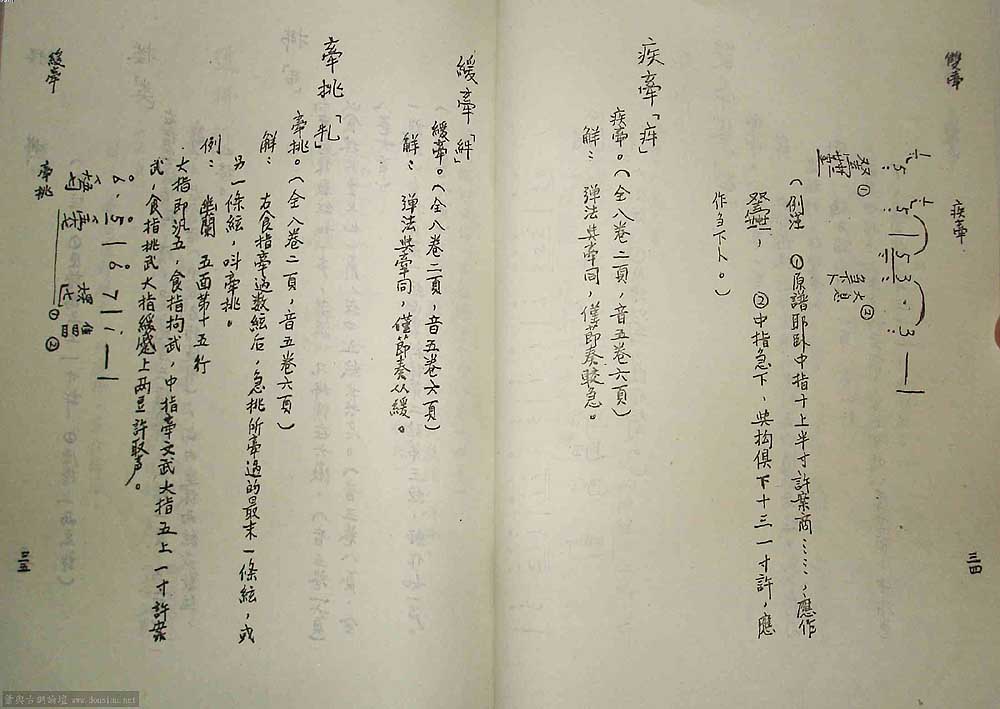 雙牽
疾牽
三四
(例注 ①原譜耶臥中指十上半寸許案商……,應作
,②中指急下,與拘俱下十三一寸許,應
作刍下卜。)
疾牽「㽱」
疾牽。(全八卷二頁,音五卷六頁)
解: 弹法與牽同,僅節奏較急。
緩牽「絆」
緩牽。(全八卷二頁,音五卷六頁)
解: 弹法與牽同,僅節奏从緩。
牽挑「㧅」
牽挑。(全八卷二頁,音五卷六頁)
解: 右食指牽過数絃后,急挑所牽過的最末一條絃,或
另一條絃,叫牽挑。
例: 幽蘭 五面第十五行
大指即汎五,食指拘武,中指牽文武大指五上一寸許案
武,食指挑武大指緩上两豆許取声。
緩牽
牽挑
三五
www.douxian.net